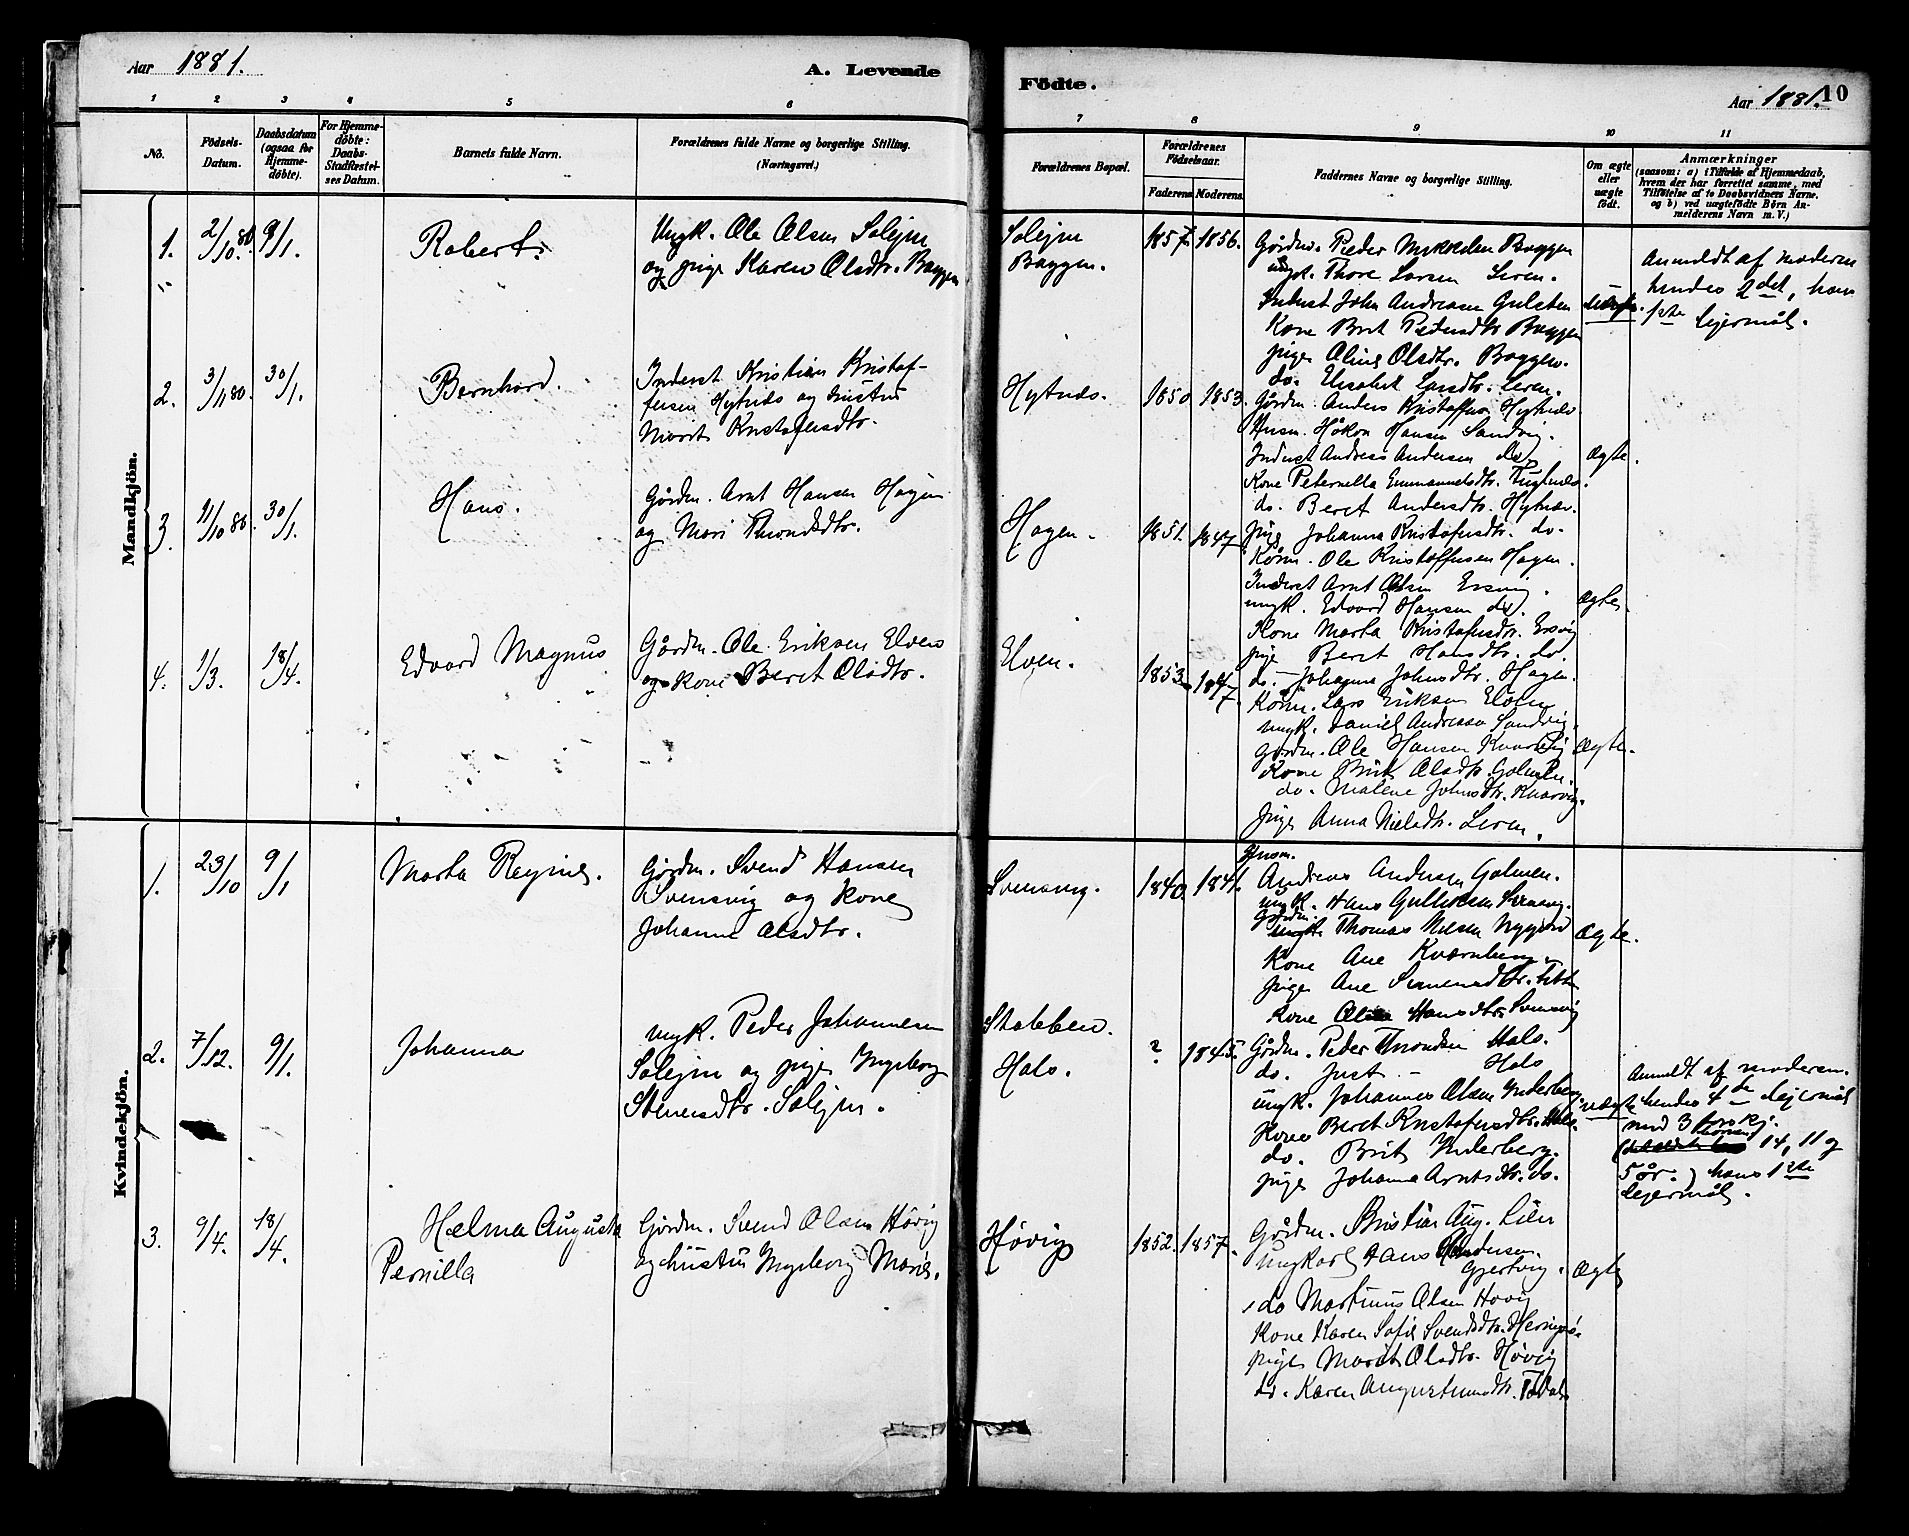 Aar 1881.
A. Levende
Födte.
Aar 1881.
10
1 2 3 4 5 6
7 8 9 10 11
No.
Födsels-
Datum.
Daabsdatum
(ogsaa for
Hjemme-
döbte).
For Hjemme-
döbte:
Daabs-
Stadfæstel-
ses Datum.
Barnets fulde Navn.
Forældrenes fulde Navne og borgerlige Stilling.
(Næringsvei.)
Forældrenes Bopæl.
Forældrenes
Födselsaar.
Faderens. Moderens.
Faddernes Navne og borgerlige Stilling.
Om ægte
eller
uægte
födt.
Anmærkninger
(saasom: a) i Tilfælde af Hjemmedaab,
hvem der har forrettet samme, med
Tilföielse af to Daabsvidners Navne.
og b) ved uægtefödte Børn An-
melderens Navn m. V.)
Mandkjön.
1. 2/10 80. 9/1. Robert.
Ungk. Ole Olsen Solejm
og pige Karen Olsdtr. Baggen
Solejm
Baggen.
1857. 1856.
Gårdm. Peder Mykkelsen Baggen
ungk. Thore Larsen Leren.
Inderst John Andreasen Gulsten
Kone Brit Pedersdtr. Baggen
pige Oline Olsdtr. Baggen.
do. Elisabet Larsdtr. Leren.
uægte.
Anmeldt af moderen
hendes 2det, hans
1ste lejermål.
2. 3/11 80. 30/1. Bernhard.
Inderst Kristian Kristof-
fersen Hytnes og hustru
Marit Kristofersdtr.
Hytnes.
1850 1853.
Gårdm. Anders Kristoffersen Hytnes
Husm. Håkon Hansen Sandvig.
Inderst Andreas Andersen do.
Kone Peternella Emmanuelsdtr.
do. Beret Andersdtr. Hytnes.
pige Johanna Kristofersdtr. do.
ægte.
3. 11/10 80. 30/1. Hans.
Gårdm. Arnt Hansen Hagen
og Mari Thronsdtr.
Hagen.
1851. 1847
Kårm. Ole Kristoffersen Hagen.
Inderst Arnt Olsen Ersvig.
ungk. Edvard Hansen do.
Kone Marta Kristofersdtr. Ersvig
pige Beret Hansdtr. do.
do. Johanna Johnsdtr. Hagen.
ægte.
4. 1/3. 18/4. Edvard Magnus
Gårdm. Ole Eriksen Elven
og kone Beret Olsdtr.
Elven.
1853. 1847.
Kårm. Lars Eriksen Elven
ungk. Daniel Andreasen Sandvig.
gårdm. Ole Hansen Kvarvig
Kone Brit Olsdtr. Galmen.
do. Malene Johnsdtr. Kvarvig.
pige Anna Nielsdtr. Leren.
ægte.
Kvindekjön.
1. 23/10 9/1 Marta Regine.
Gårdm. Svend Hansen
Svensvig og kone
Johanna Olsdtr.
Svensvig.
1840. 1841.
Husm.
Andreas Andersen Galmen.
ungk. Hans Gulliksen Svensvig.
gårdm. Thomas Nilsen Nygård
Kone Ane Kvarnberg.
pige Ane
Kone Hansdtr. Svensvig
ægte.
2. 7/12. 9/1. Johanna
ungk. Peder Johannesen
Solejm og pige Ingeborg
Stenersdtr. Solejm.
Stabben.
Hals.
? 1845.
Gårdm. Peder Thronsen Hals.
do. Just - Hals
ungk. Johannes Olsen Inderberg.
Kone Beret Kristofersdtr. Hals.
do. Brit Inderberg.
pige Johanna Arntsdtr. do.
uægte
Anmeldt af moderen.
hendes 4de lejermål
med 3 forskj.
14, 11 og
5 år.) hans 1ste
lejermål.
3. 9/4. 18/4. Hælma Augusta
Pernilla
Gårdm. Svend Olsen Høvig
og hustru Ingeborg Marie.
Høvig
1852. 1857.
Gårdm. Kristian Aug. Lien
Ungkarl Hans Andersen
Gjertvig.
do Martinus Olsen Høvig
Kone Karen Sofie Svendsdtr.
pige Marit Olsdtr. Høvig
do. Karen Augustinusdtr.
Ægte